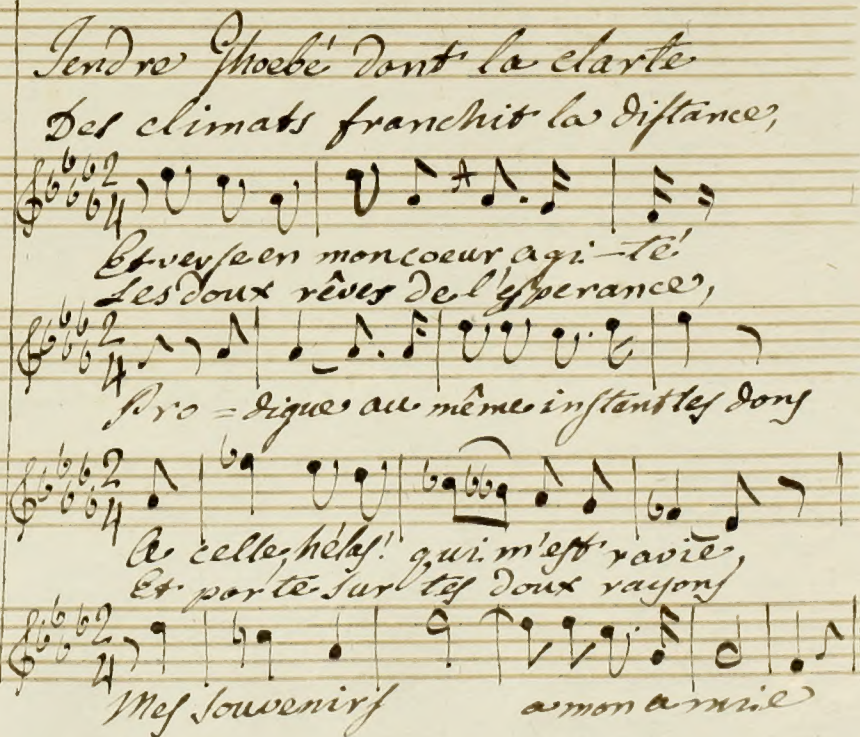 Tendre Phoebé dont la clarte
Des climats franchit la distance,
Et verse en mon coeur agi-té
Les doux rêves de l'esperance,
Pro=digue au même instant tes dons
A celle, hélas! qui m'est ravie,
Et porte sur tes doux rayons
Mes souvenirs a mon amie